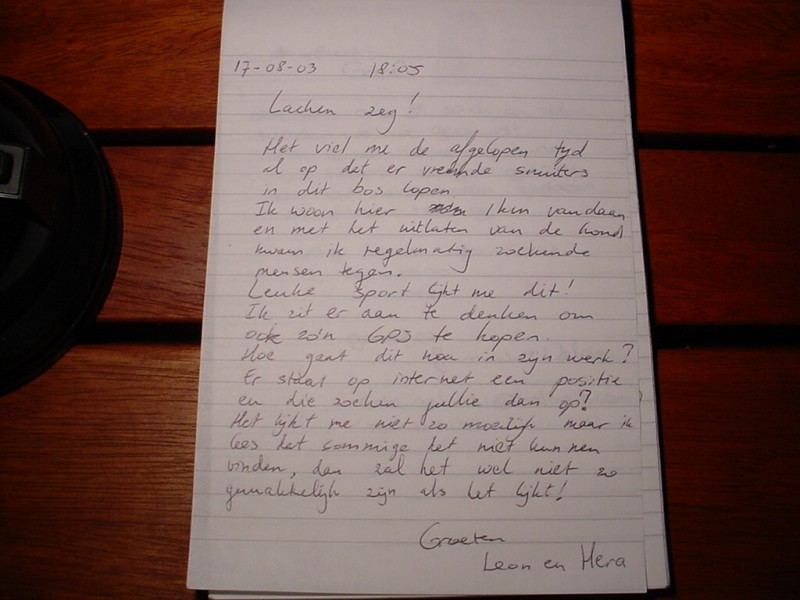 17-08-03 18:05
Lachen zeg!
Het viel me de afgelopen tyd
al op dat er vreemde snuiters
in dit bos lopen.
Ik woon hier 1 km vandaan
en met het uitlaten van de hond
kwam ik regelmatig zoekende
mensen tegen.
Leuke sport lijkt me dit!
Ik zit er aan te denken om
ook zo'n GPS te kopen.
Hoe gaat dit nou in zijn werk?
Er staat op internet een positie
en die zoeken jullie dan op?
Het lijkt me niet zo moeilijk maar ik
lees het sommige het niet kunnen
vinden, dan zal het wel niet zo
gemakkelijk zijn als het lijkt!
Groeten
Leon en Hera